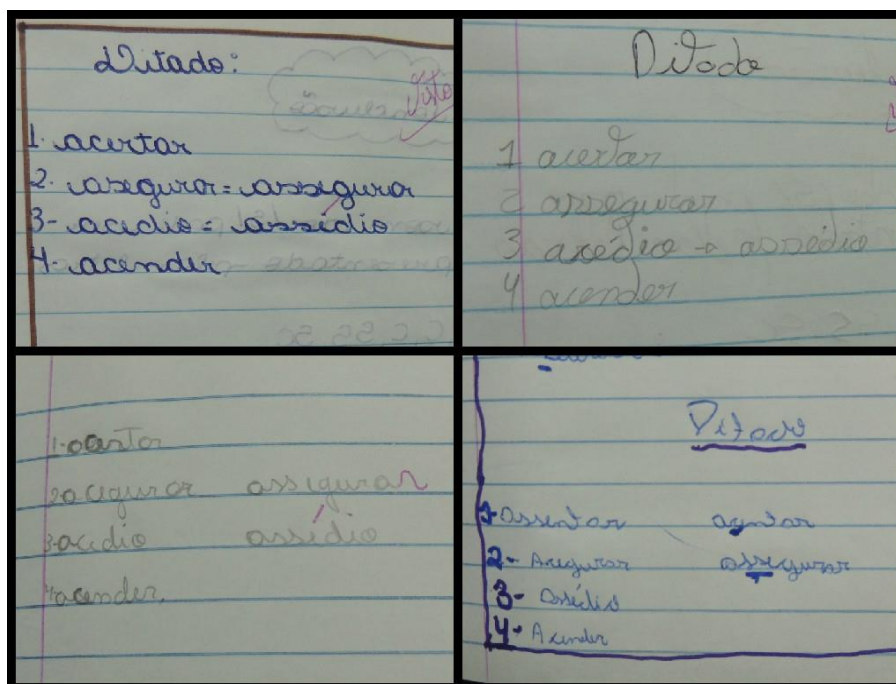 Ditado:
Visto
1. acertar
2. aseguror = assegurar
3- acedio = assédio
4. acender
Ditado
1 acertar
2 assegurar
3 axédio → assédio
4 acender
1-acertar
2 acegurar assegurar
3-acedio assédio
4 acender.
Ditado
1- Assentar
2- Acegurar assegurar
3- Assédio
4- Acender